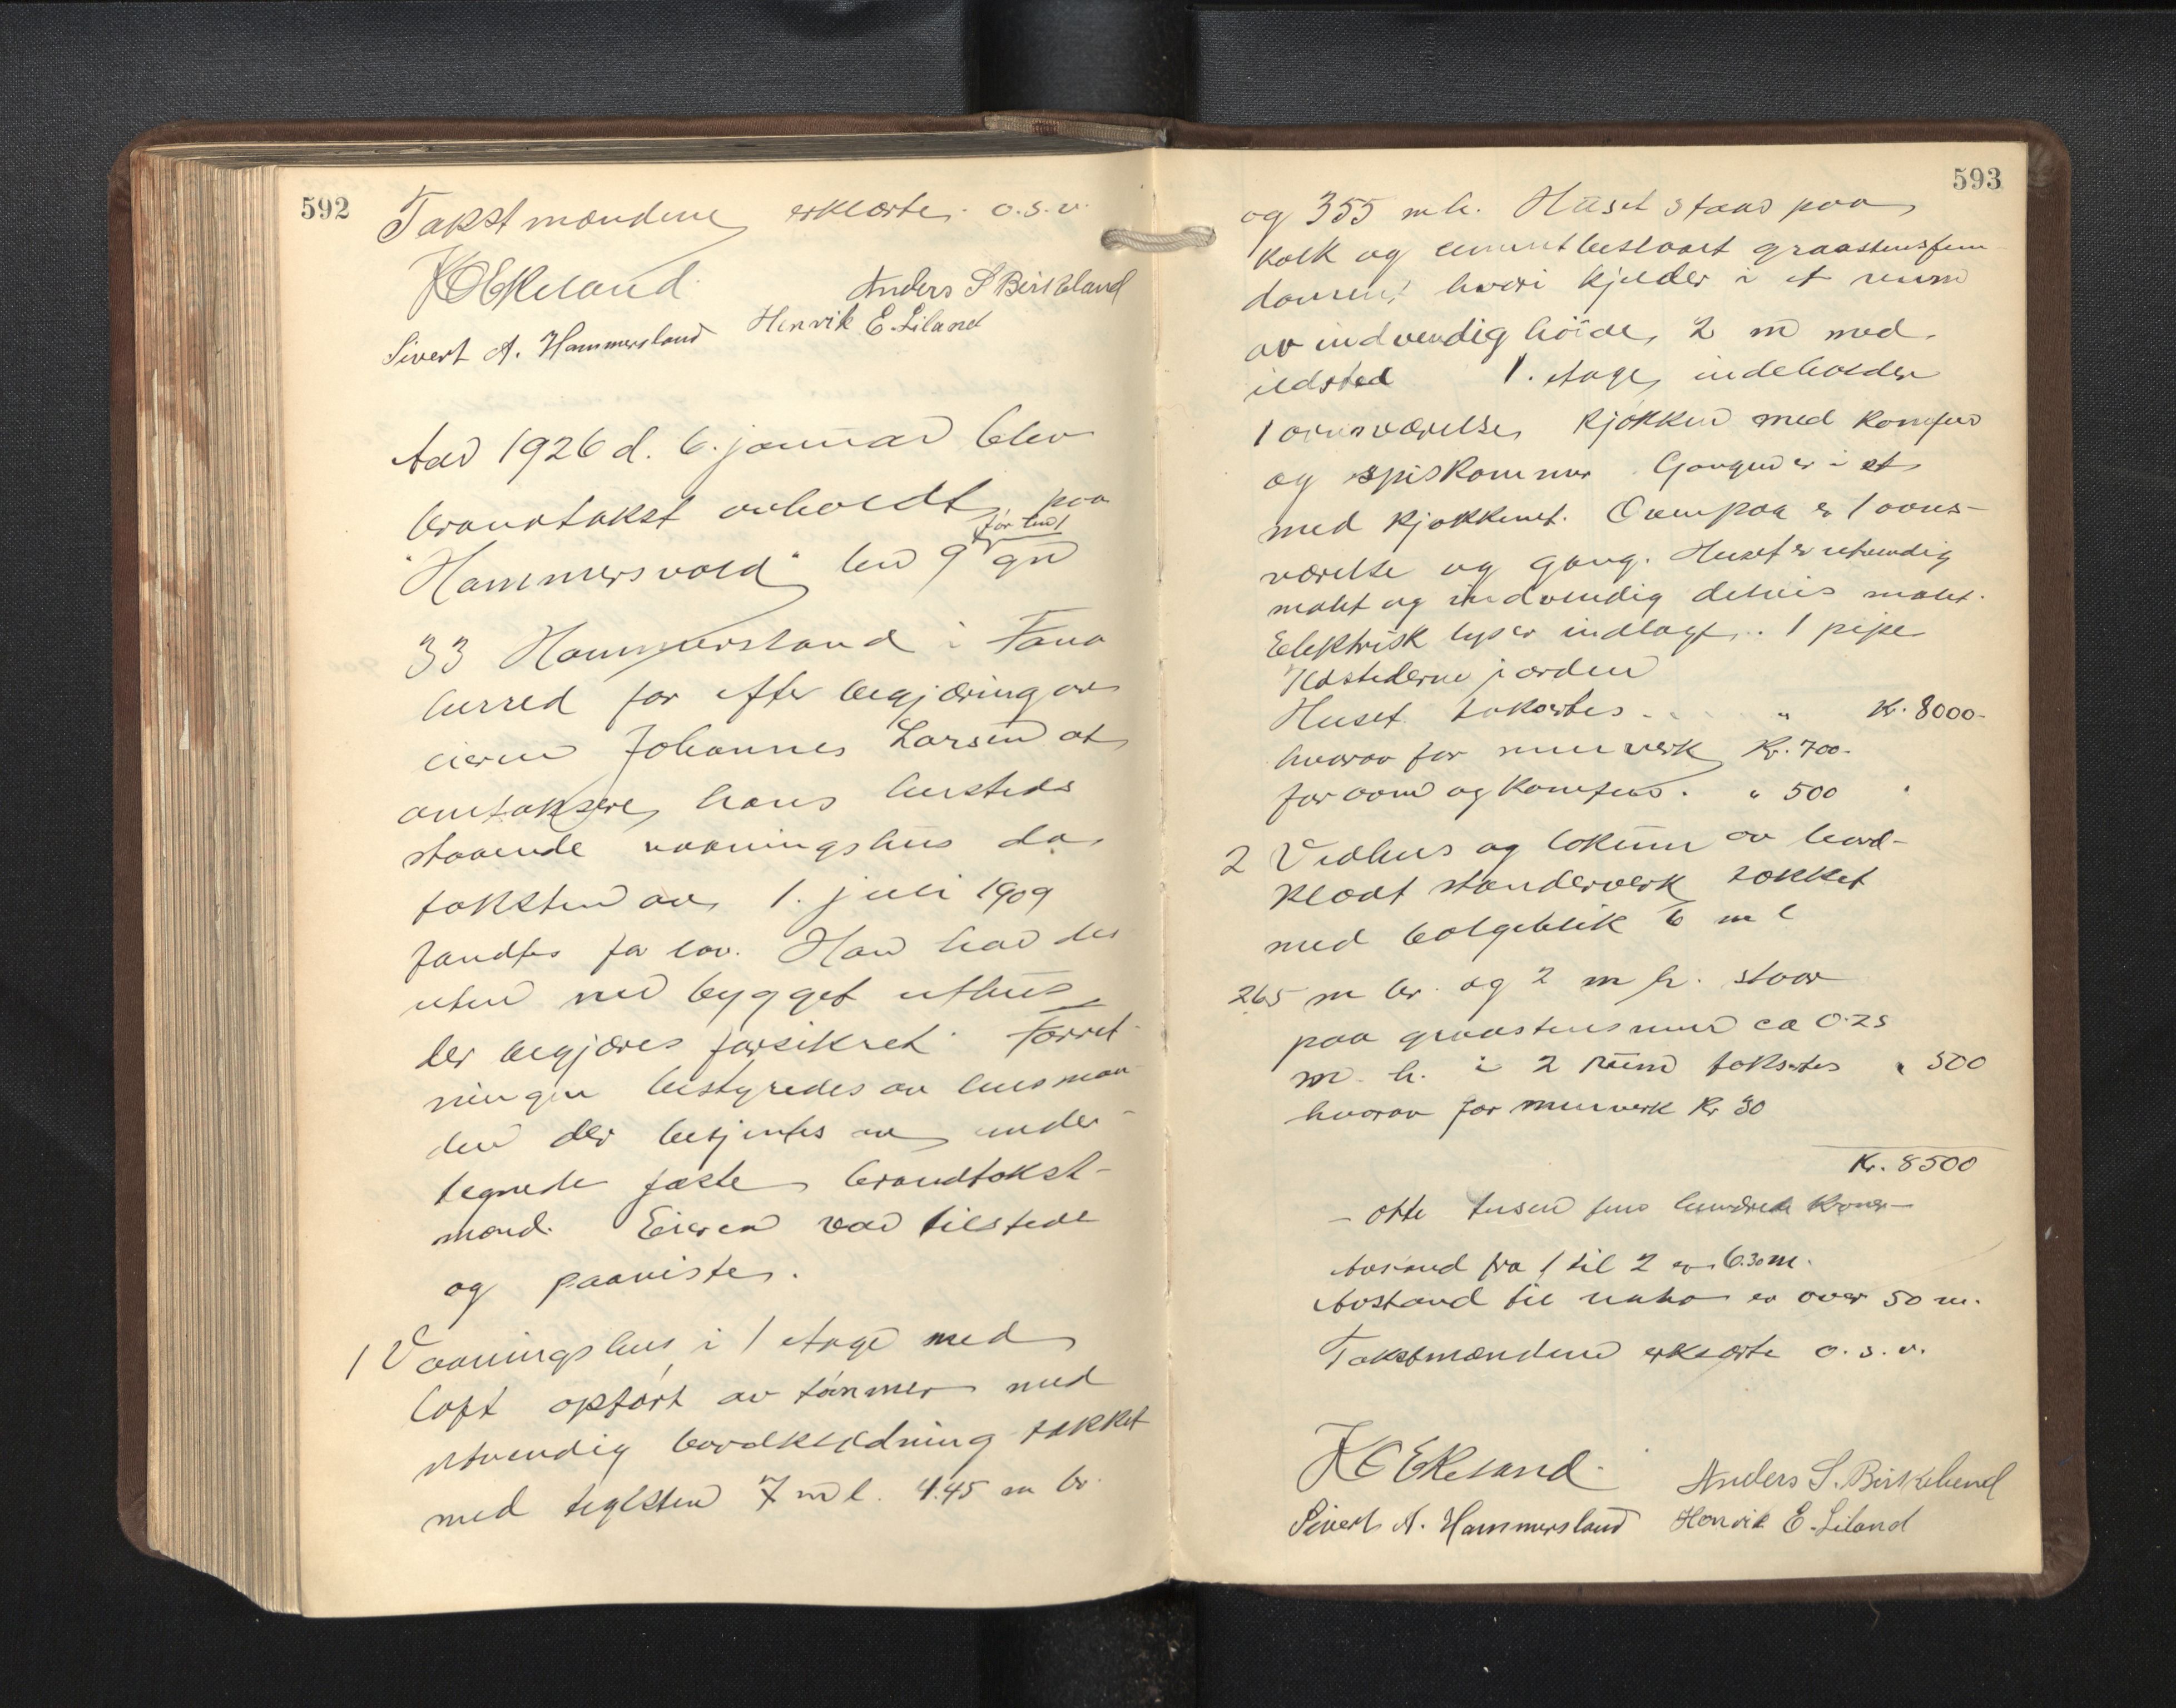 592
Takstmændene erklærte o.s.v.
K O Ekeland
Anders S Birkeland
Sivert A. Hammersland
Henrik E. Liland
Aar 1926 d. 6. januar blev
brandtakst avholdt paa
"Hammersvold" bn 9 før tent gn
33 Hammersland i Fana
herred for efter begjæring av
eieren Johannes Larsen at
omtaksere hans hersteds
staaende vaaningshus da
taksten av 1. juli 1909
fandtes for lav. Han har des
uten nu bygget uthus
der begjæres forsikret. Forret
ningen bestyredes av lensman
den der betjentes av under
tegnede faste brandtakst-
mænd. Eieren var tilstede
og paaviste.
1 Vaaningshus i 1 etage med
loft opført av tømmer med
utvendig bordklædning tækket
med teglsten 7 m l. 4.45 m br.
593
og 355 m h. Huset staar paa
kalk og cementbeslaaet graastensfun
dament hvori kjelder i et rum
av indvendig høide 2 m med
ildsted 1. etage indeholder
1 ovnsværelse kjøkken med komfur
og spiskammer. Gangen er i et
med kjøkkenet. Ovenpaa er 1 ovns-
værelse og gang. Huset er utvendig
malt og indvendig delvis malt.
Elektrisk lys er indlagt. 1 pipe
Ildstederne i orden
Huset takertes " Kr. 8000-
hvorav for murverk Kr. 700-
for ovne og komfur. " 500
2 Vedhus og lokum av bord-
klædt standerverk tækket
med bølgeblik 6 m l
265 m br. og 2 m h. staar
paa graastensmur ca 0.25
m. h. i 2 rum takstes " 500
hvorav for murverk Kr 30
Kr. 8500
- otte tusen fem hundrede kroner-
Avstand fra 1 til 2 er 6.30 m.
Avstand til nabo er over 50 m.
Takstmændene erklærte o.s.v.
K O Ekeland.
Anders S. Birkeland
Sivert A. Hammersland
Henrik E. Liland